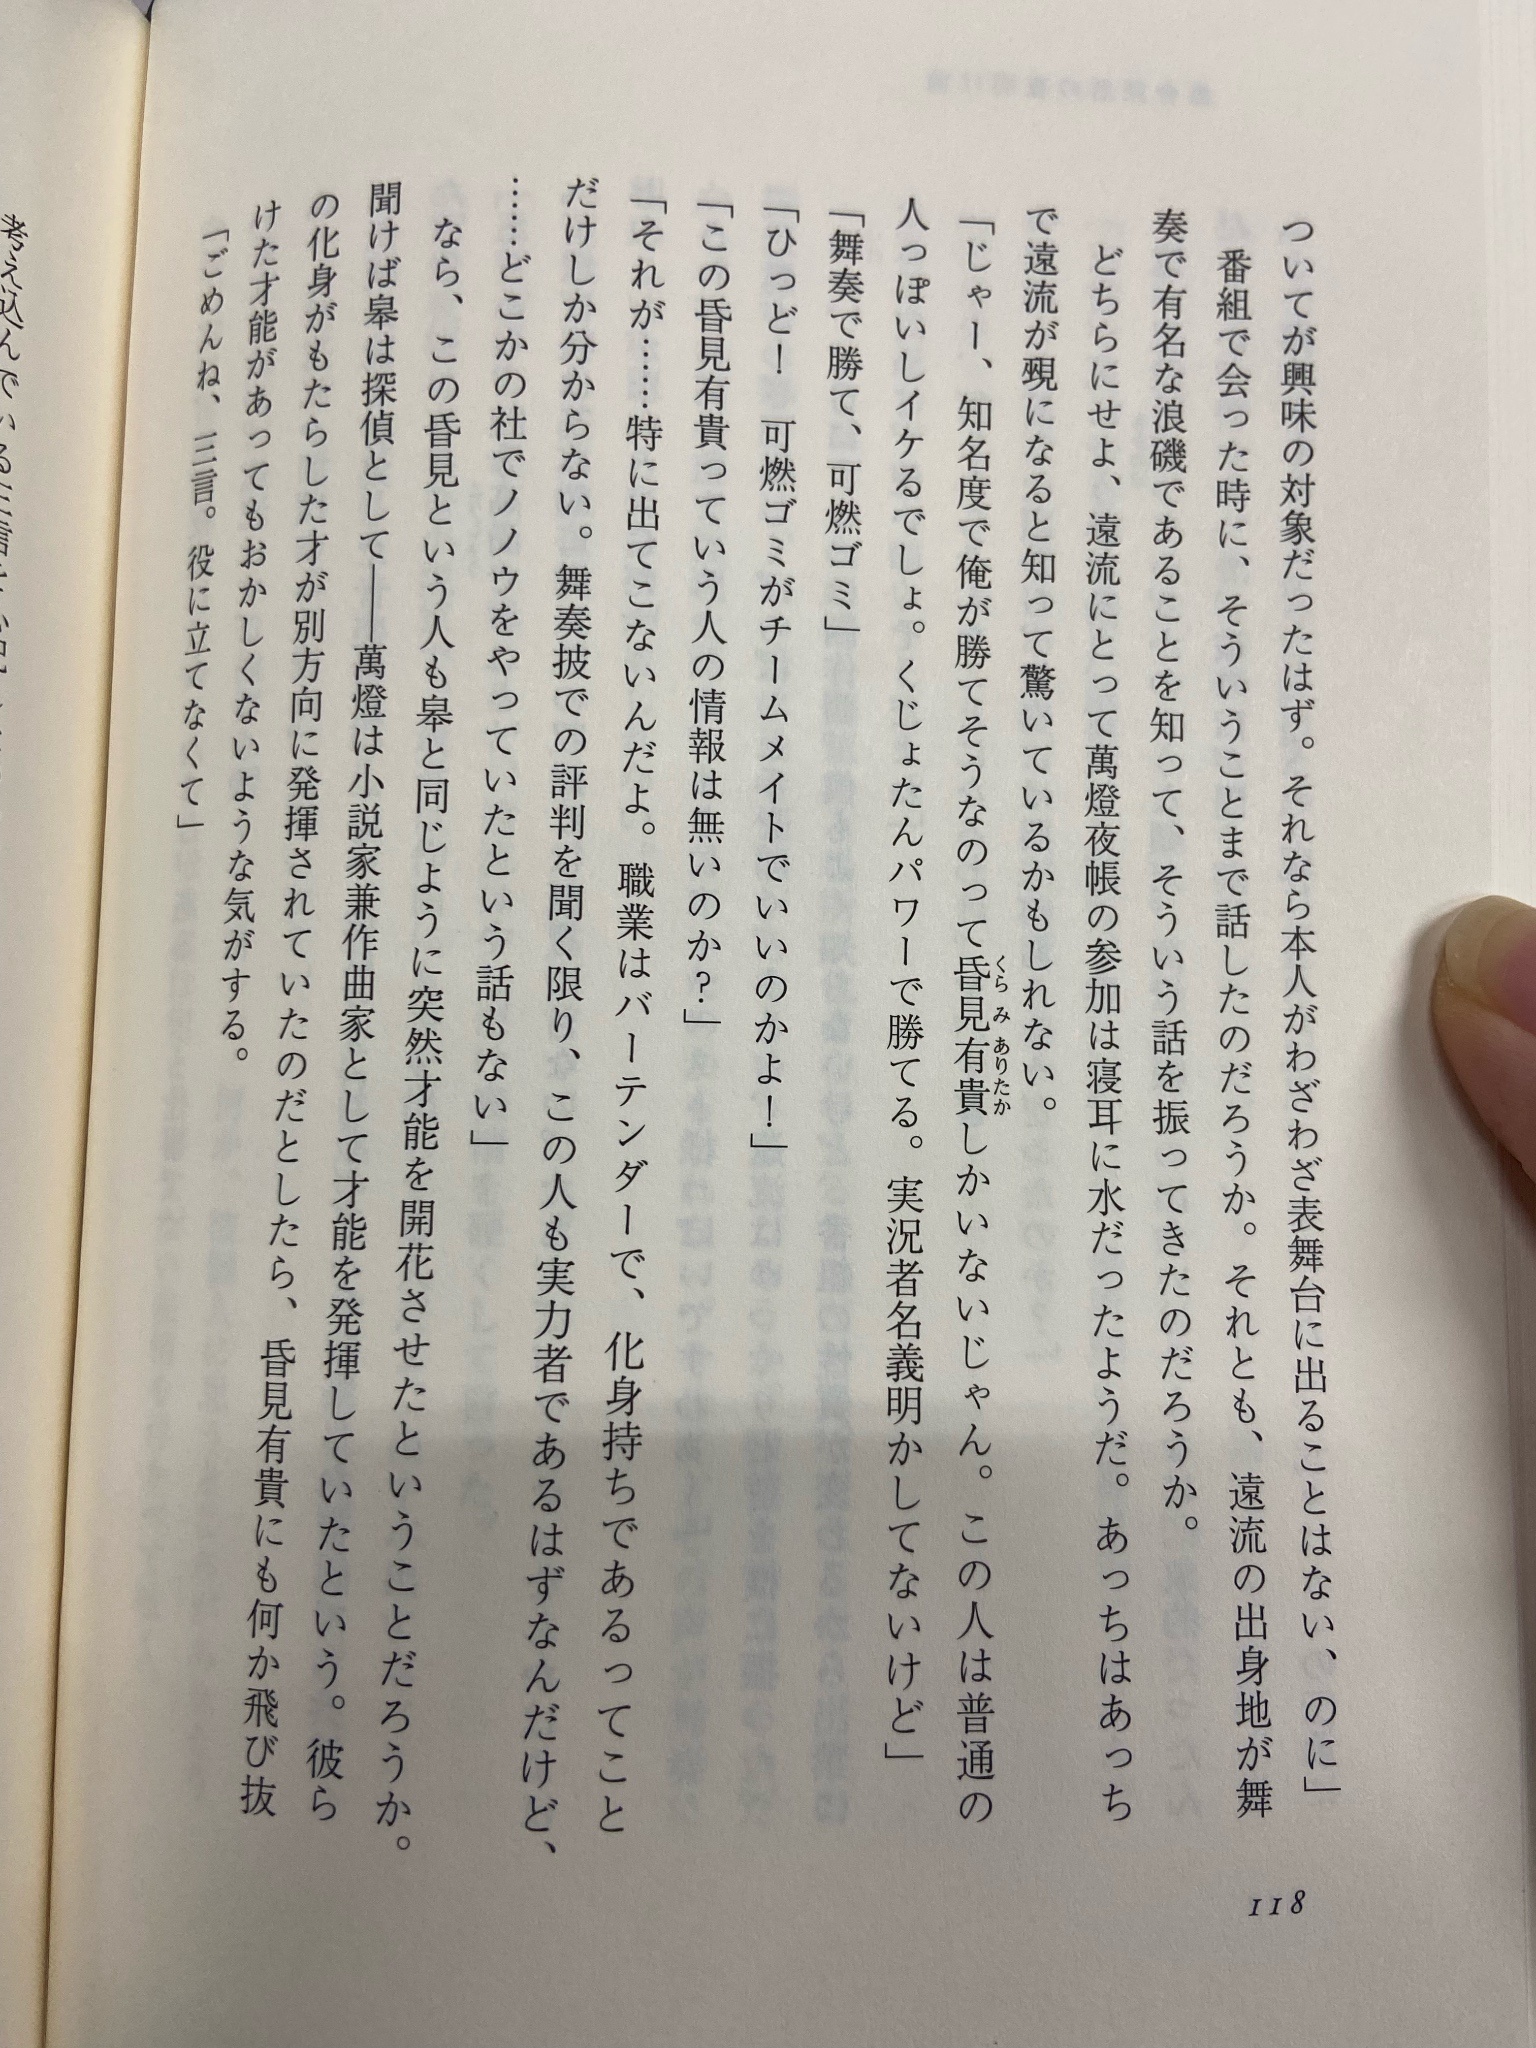 ついてが興味の対象だったはず。それなら本人がわざわざ表舞台に出ることはない、のに」
番組で会った時に、そういうことまで話したのだろうか。それとも、遠流の出身地が舞
奏で有名な浪磯であることを知って、そういう話を振ってきたのだろうか。
どちらにせよ、遠流にとって萬燈夜帳の参加は寝耳に水だったようだ。あっちはあっち
で遠流が覡になると知って驚いているかもしれない。
「じゃー、知名度で俺が勝てそうなのって昏見有貴しかいないじゃん。この人は普通の
くらみありたか
人っぽいしイケるでしょ。くじょたんパワーで勝てる。実況者名義明かしてないけど」
「舞奏で勝て、可燃ゴミ」
「ひっど！　可燃ゴミがチームメイトでいいのかよ！」
「この昏見有貴っていう人の情報は無いのか？」
「それが……特に出てこないんだよ。職業はバーテンダーで、化身持ちであるってこと
だけしか分からない。舞奏披での評判を聞く限り、この人も実力者であるはずなんだけど、
……どこかの社でノノウをやっていたという話もない」
なら、この昏見という人も皋と同じように突然才能を開花させたということだろうか。
聞けば皋は探偵として――萬燈は小説家兼作曲家として才能を発揮していたという。彼ら
の化身がもたらした才が別方向に発揮されていたのだとしたら、昏見有貴にも何か飛び抜
けた才能があってもおかしくないような気がする。
「ごめんね、三言。役に立てなくて」
118